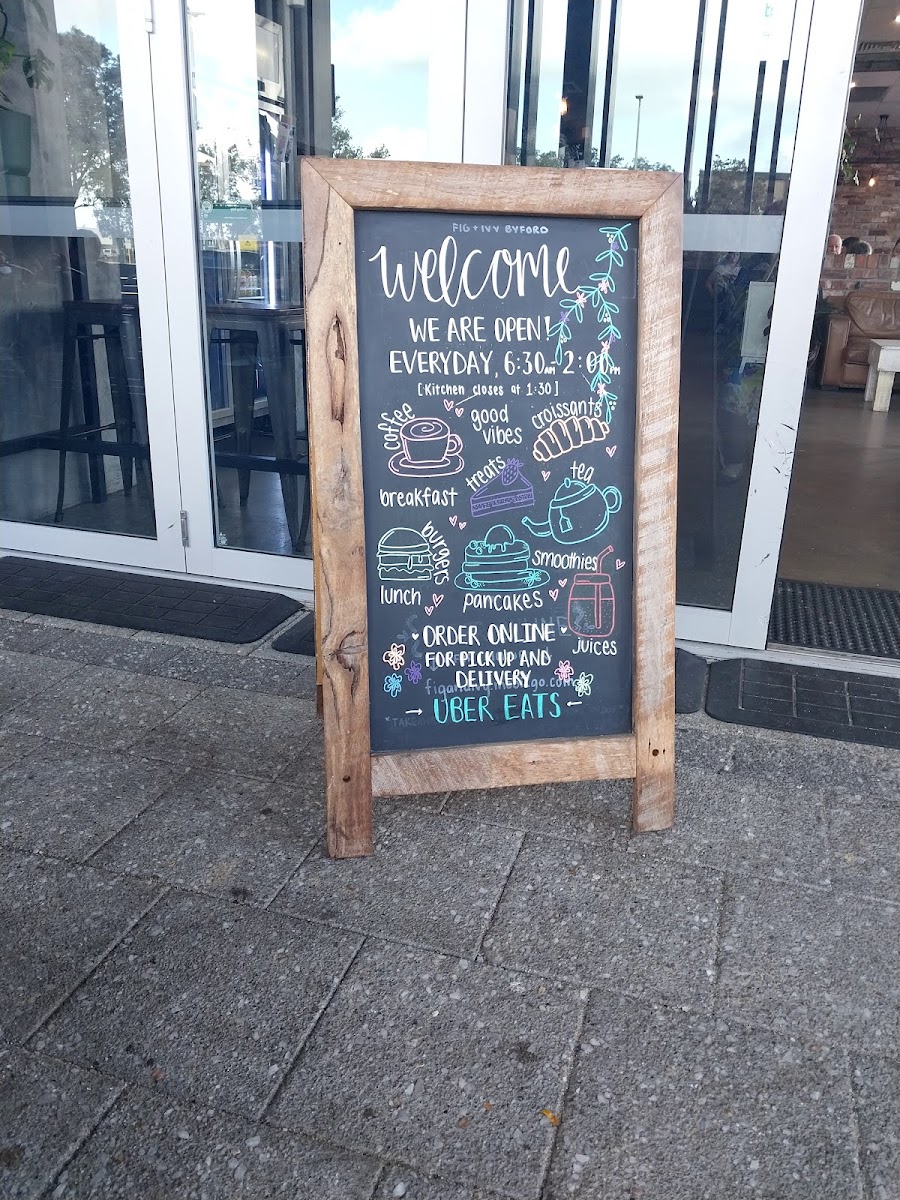 FIG + IVY BYFORD
welcome
WE ARE OPEN!
EVERYDAY, 6:30AM - 2:00PM
[Kitchen closes at 1:30]
coffee
good
vibes
croissants
treats
tea
breakfast
burgers
smoothies
lunch
pancakes
juices
ORDER ONLINE
FOR PICK UP AND
DELIVERY
→ UBER EATS ←